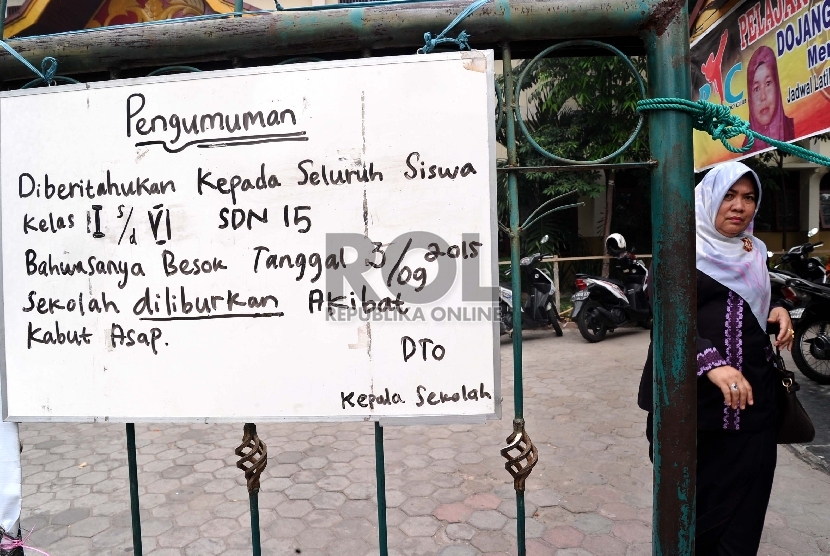 Pengumuman
Diberitahukan Kepada Seluruh Siswa
Kelas I s/d VI SDN 15
Bahwasanya Besok Tanggal 3/09 2015
Sekolah diliburkan Akibat
Kabut Asap.
DTO
Kepala Sekolah
ROL
REPUBLIKA ONLINE
PELAJAR
DOJANG
Me
Jadwal Lati